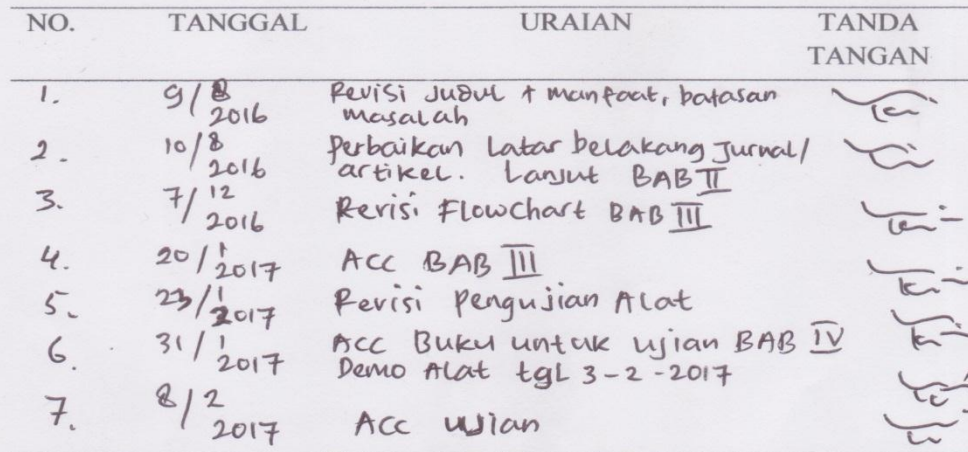 NO. TANGGAL URAIAN TANDA
TANGAN
1. 9/8 2016 Revisi Judul + manfaat, batasan
masalah
2. 10/8 2016 Perbaikan Latar belakang Jurnal/
artikel. Lanjut BAB II
3. 7/12 2016 Revisi Flowchart BAB III
4. 20/1 2017 ACC BAB III
5. 23/1 2017 Revisi Pengujian Alat
6. 31/1 2017 ACC Buku untuk ujian BAB IV
Demo Alat tgl 3-2-2017
7. 8/2 2017 Acc ujian